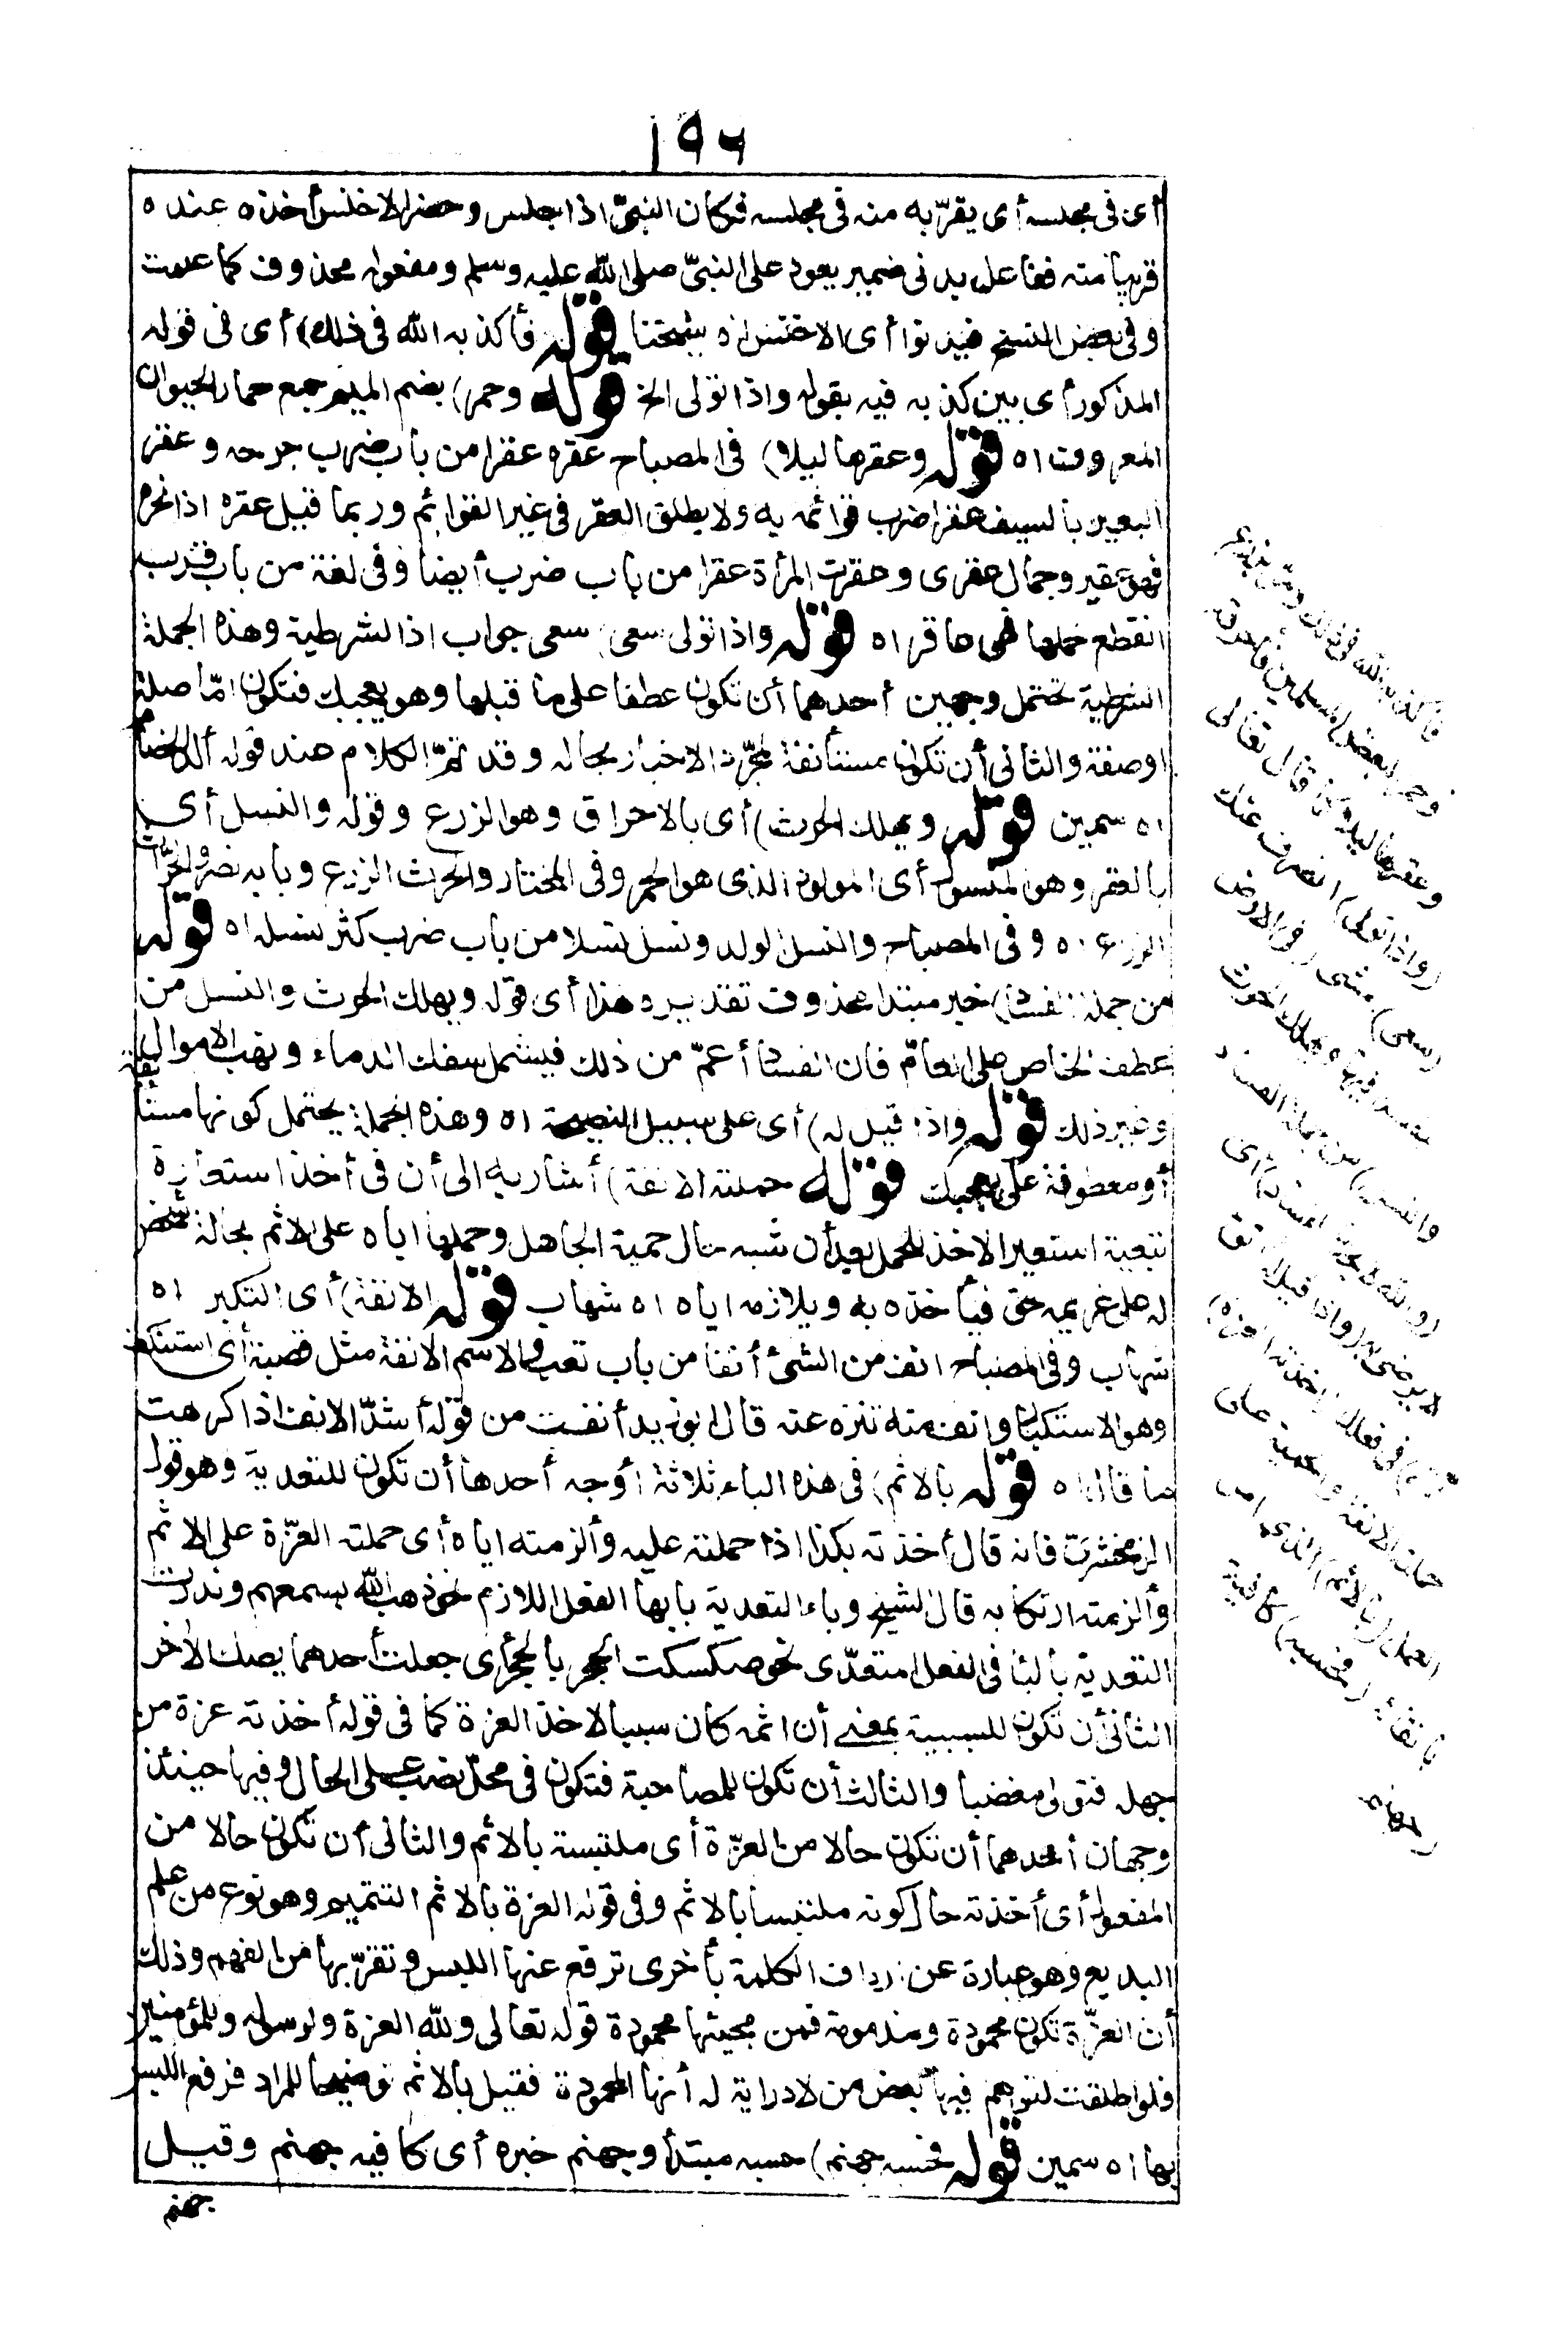 ١٩٦
أى فى مجلسه أى يقرّ به منه فى مجلسه فكان النبىّ اذا جلس وحضر الاخنس أخذه عنده
قريبا منه ففاعل يدنى ضمير يعود على النبىّ صلى الله عليه وسلم ومفعوله محذوف كما علمت
وفى بعض النسخ فيدنوا أى الاخنس اه شيخنا قوله فأكذبه الله فى ذلك) أى فى قوله
المذكور أى بين كذبه فيه بقوله واذا تولى الخ قوله وحمر) بضم الميم جمع حمار الحيوان
المعروف اه قوله وعقرها ليلا) فى المصباح عقره عقرا من باب ضرب جرحه وعقر
البعير بالسيف عقرا ضرب قوائمه به ولا يطلق العقر فى غير القوائم وربما قيل عقره اذا نحره
فهو عقير وجمال عقرى وعقرت المرأة عقرا من باب ضرب أيضا وفى لغة من باب قرب
انقطع حملها فهى عاقر اه قوله واذا تولى سعى) سعى جواب اذا الشرطية وهذه الجملة
الشرطية تحتمل وجهين أحدهما أن تكون عطفا على ما قبلها وهو يعجبك فتكون امّا صلة
اوصفة والثانى أن تكون مستأنفة لمجرّد الاخبار بحاله وقد تمّ الكلام عند قوله ألد الخصام
اه سمين قوله ويهلك الحرث) أى بالاحراق وهو الزرع وقوله والنسل أى
بالعقر وهو المنسول أى المولود الذى هو الحمر وفى المختار والحرث الزرع وبابه نصر والحرّاث
الزرع اه وفى المصباح والنسل الولد ونسل نسلا من باب ضرب كثر نسله اه قوله
من جملة الفساد) خبر مبتدا محذوف تقديره هذا أى قوله ويهلك الحرث والنسل من
عطف الخاص على العامّ فان الفساد أعمّ من ذلك فيشمل سفك الدماء ونهب الاموال
وغير ذلك قوله واذا قيل له) أى على سبيل النصيحة اه وهذه الجملة يحتمل كونها مستأنفة
أو معطوفة على يعجبك قوله حملته الانفة) أشار به الى أن فى أخذ استعارة
تبعية استعير الاخذ للحمل بعد أن شبه حال حمية الجاهل وحملها اياه على الاثم بحالة شخص
له على غريمه حق فيأخذه به ويلازمه اياه اه شهاب قوله الانفة) أى التكبر اه
شهاب وفى المصباح انف من الشئ أنفا من باب تعب والاسم الانفة مثل قصبة أى استنكف
وهو الاستكبار وانف منه تنزه عنه قال ابو زيد أنفت من قوله أشدّ الانف اذا كرهت
ما قال اه قوله بالاثم) فى هذه الباء ثلاثة أوجه أحدها أن تكون للتعدية وهو قول
الزمخشرى فانه قال أخذته بكذا اذا حملته عليه وألزمته اياه أى حملته العزّة على الاثم
وألزمته ارتكابه قال الشيخ وباء التعدية بابها الفعل اللازم نحو ذهب الله بسمعهم وندرت
التعدية بالبا فى الفعل المتعدّى نحو صككت الحجر بالحجر أى جعلت أحدهما يصك الآخر
الثانى أن تكون للسببية بمعنى أن اثمه كان سببا لاخذ العزة كما فى قوله أخذته عزة من
جهله فتولى مغضبا والثالث أن تكون للمصاحبة فتكون فى محلّ نصب على الحال وفيها حينئذ
وجهان أحدهما أن تكون حالا من العزّة أى ملتبسة بالاثم والثانى أن تكون حالا من
المفعول أى أخذته حال كونه ملتبسا بالاثم وفى قوله العزة بالاثم التتميم وهو نوع من علم
البديع وهو عبارة عن ارداف الكلمة بأخرى ترفع عنها اللبس وتقرّبها من الفهم وذلك
أن العزّة تكون محمودة ومذمومة فمن مجيئها محمودة قوله تعالى ولله العزة ولرسوله وللمؤمنين
فلو اطلقت لتوهم فيها بعض من لا دراية له أنها المحمودة فقيل بالاثم توضيحا للمراد فرفع اللبس
بها اه سمين قوله فحسبه جهنم) حسبه مبتدأ وجهنم خبره أى كافيه جهنم وقيل
جهنم
فأكذبه الله فى ذلك ومرّ بزرع
وحمر لبعض المسلمين فأحرقه
وعقرها ليلا كما قال تعالى
(واذا تولى) انصرف عنك
(سعى) مشى (فى الارض
ليفسد فيها ويهلك الحرث
والنسل) من جملة الفساد
(والله لا يحب الفساد) أى
لا يرضى به (واذا قيل له اتق
الله) فى فعلك (أخذته العزة)
حملته الانفة والحمية على
العمل (بالاثم) الذى أمر
باتقائه (فحسبه) كافيه
(جهنم